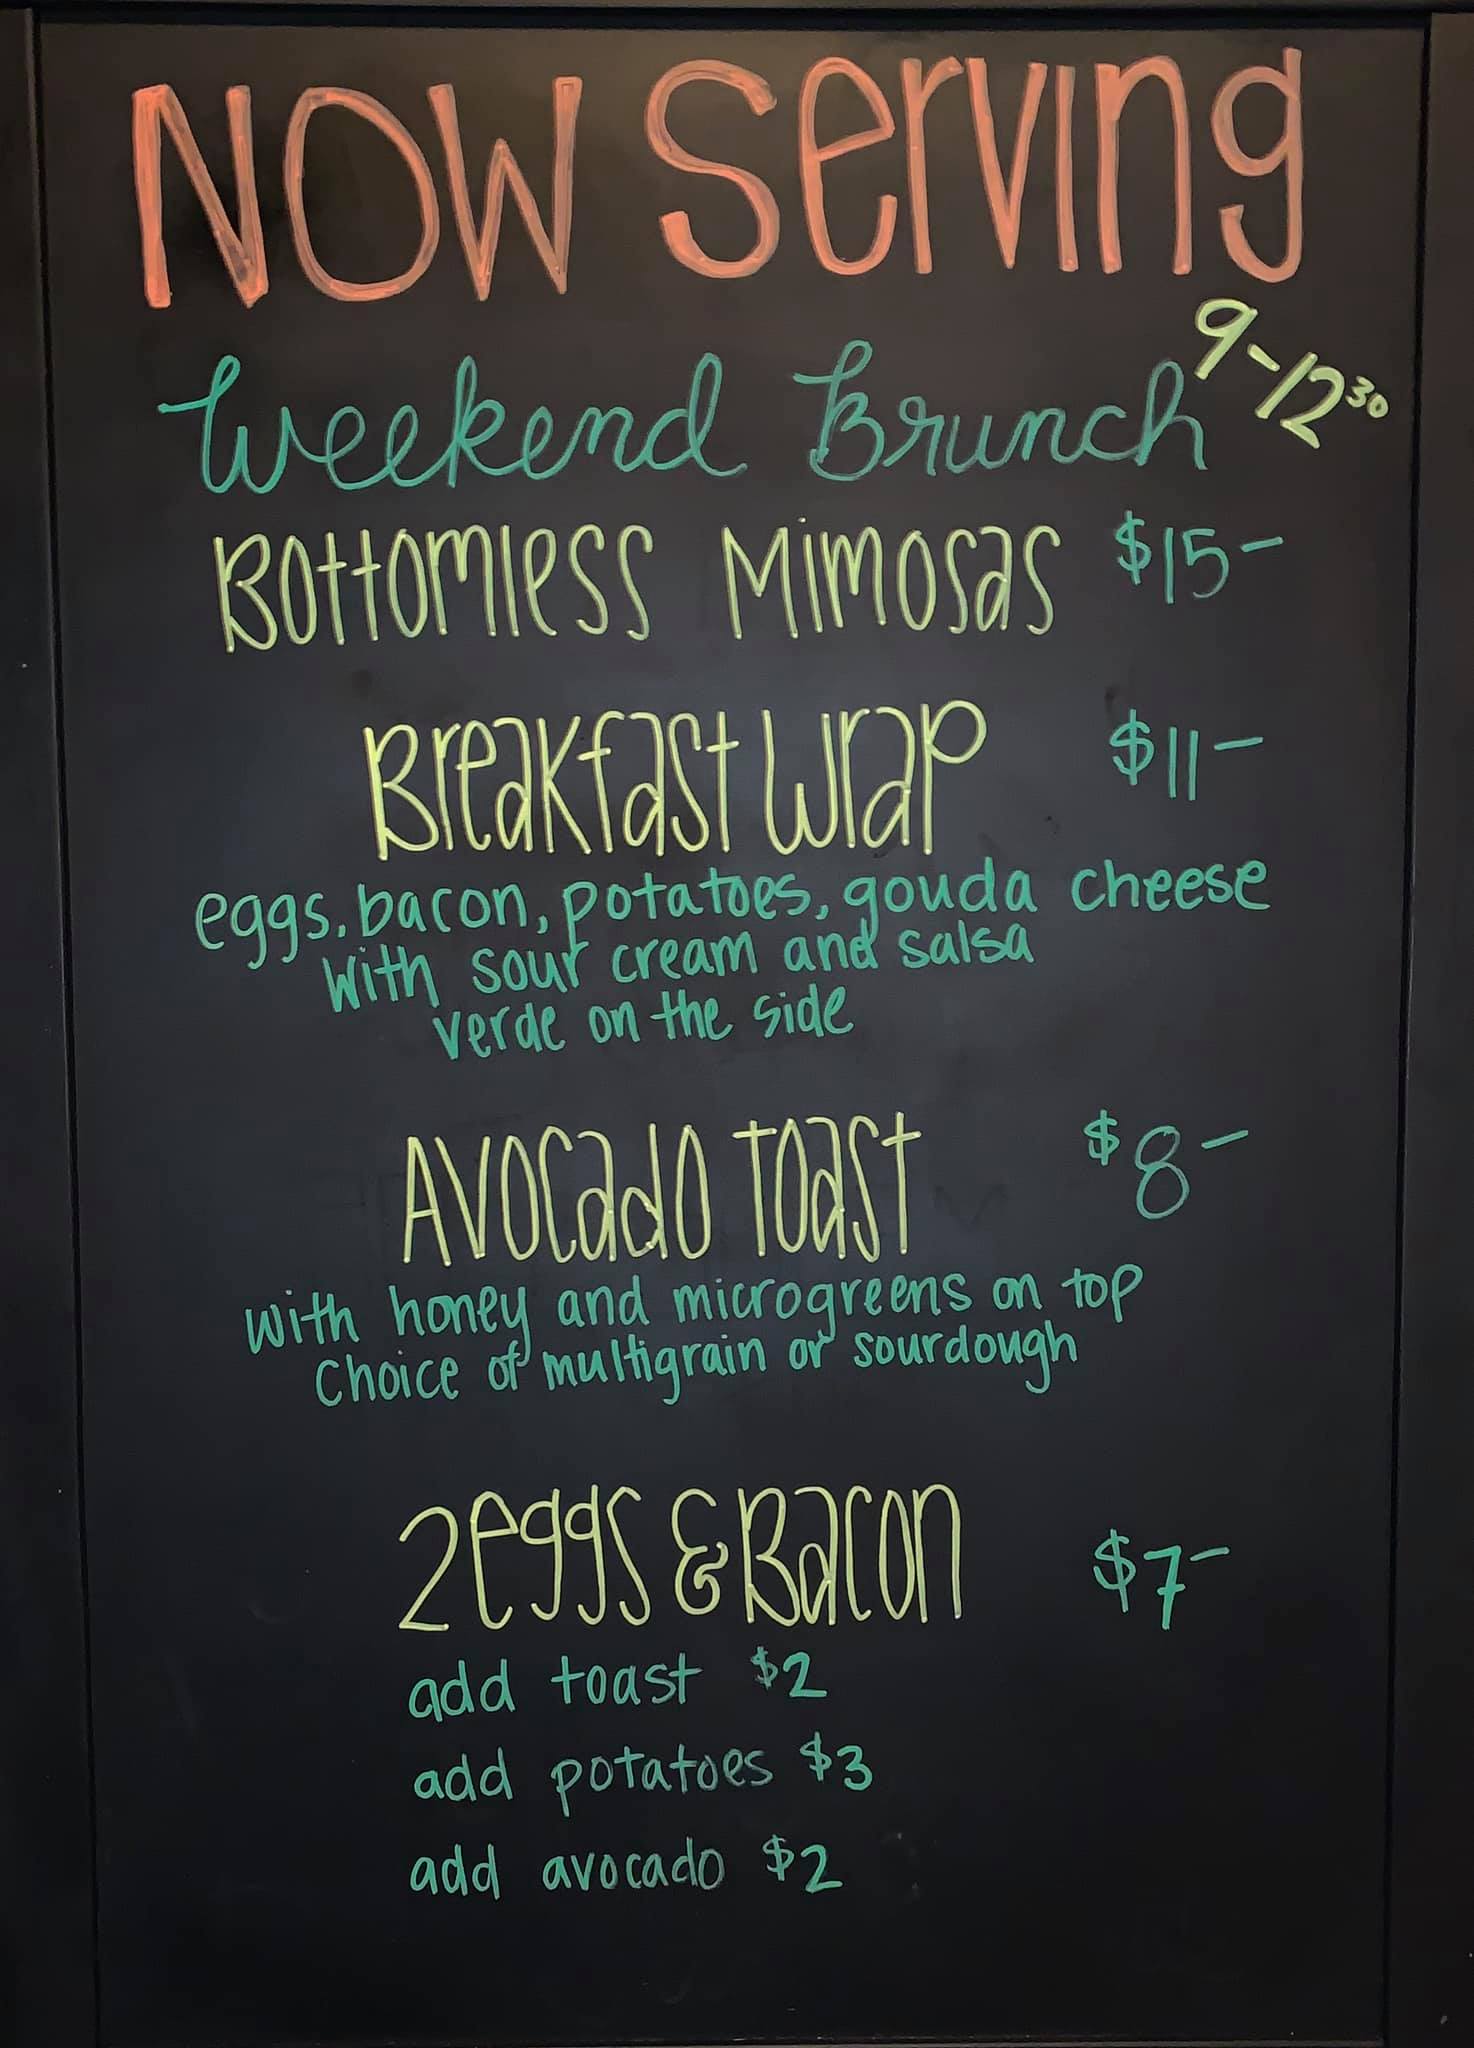 NOW Serving
9-12³⁰
Weekend Brunch
Bottomless Mimosas $15-
Breakfast Wrap $11-
eggs, bacon, potatoes, gouda cheese
with sour cream and salsa
verde on the side
Avocado Toast $8-
with honey and microgreens on top
Choice of multigrain or sourdough
2 eggs & Bacon $7-
add toast $2
add potatoes $3
add avocado $2